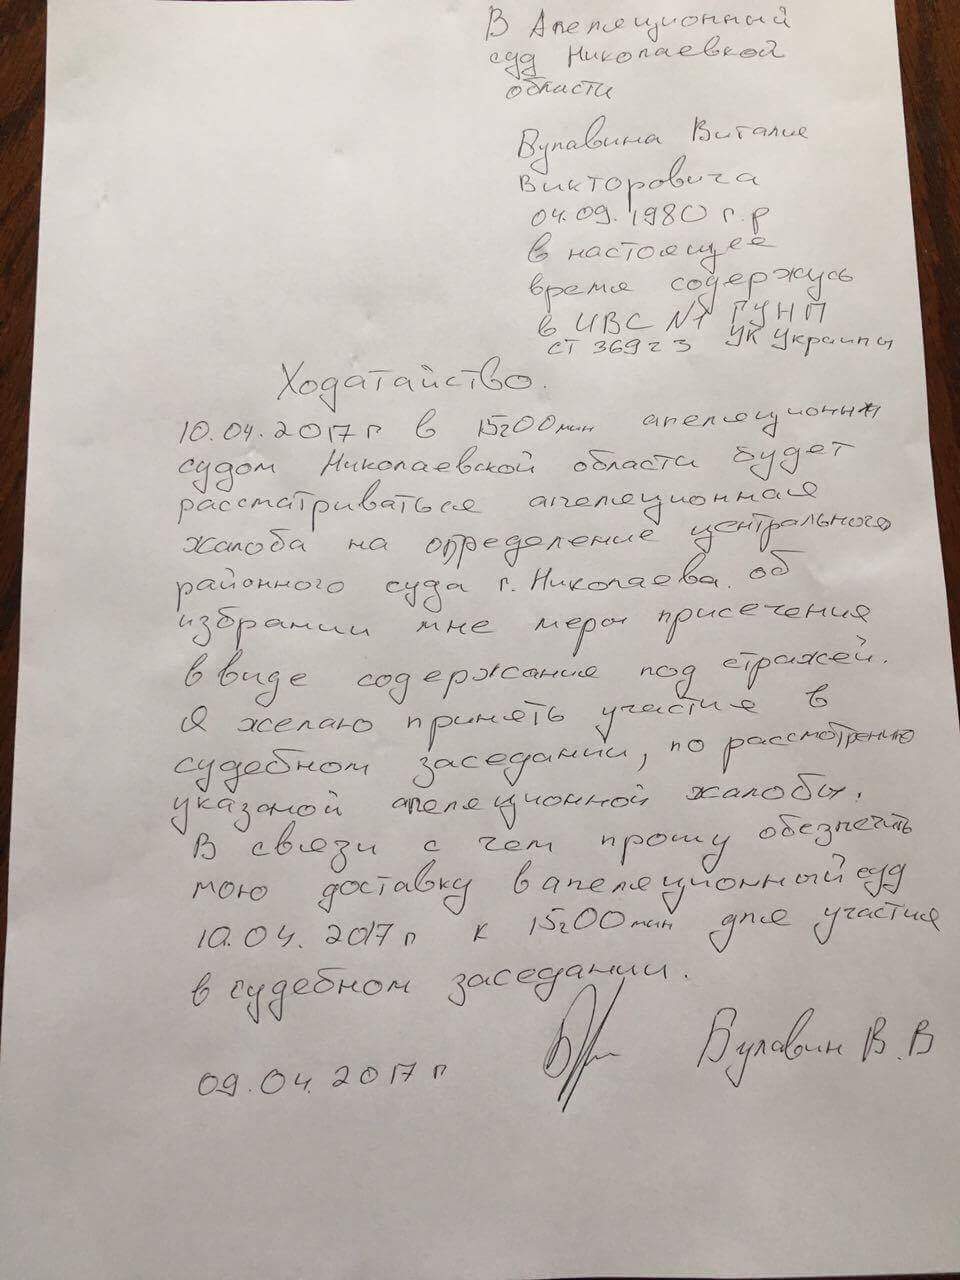 В Апеляционный
суд Николаевкой
области
Булавина Виталия
Викторовича
04.09.1980 г.р
в настоящее
время содержусь
в ИВС №1 ГУНП
ст 369 ч 3 УК Украины
Ходатайство.
10.04.2017 г в 15ч00мин апеляционным
судом Николаевской области будет
рассматриваться апеляционная
жалоба на определение центрального
районного суда г. Николаева. об
избрании мне меры присечения
в виде содержание под стражей.
Я желаю принять участие в
судебном заседании, по рассмотрению
указаной апеляционной жалобы.
В связи с чем прошу обезпечить
мою доставку в апеляционный суд
10.04.2017 г к 15ч00мин для участия
в судебном заседании.
09.04.2017 г Булавин В.В